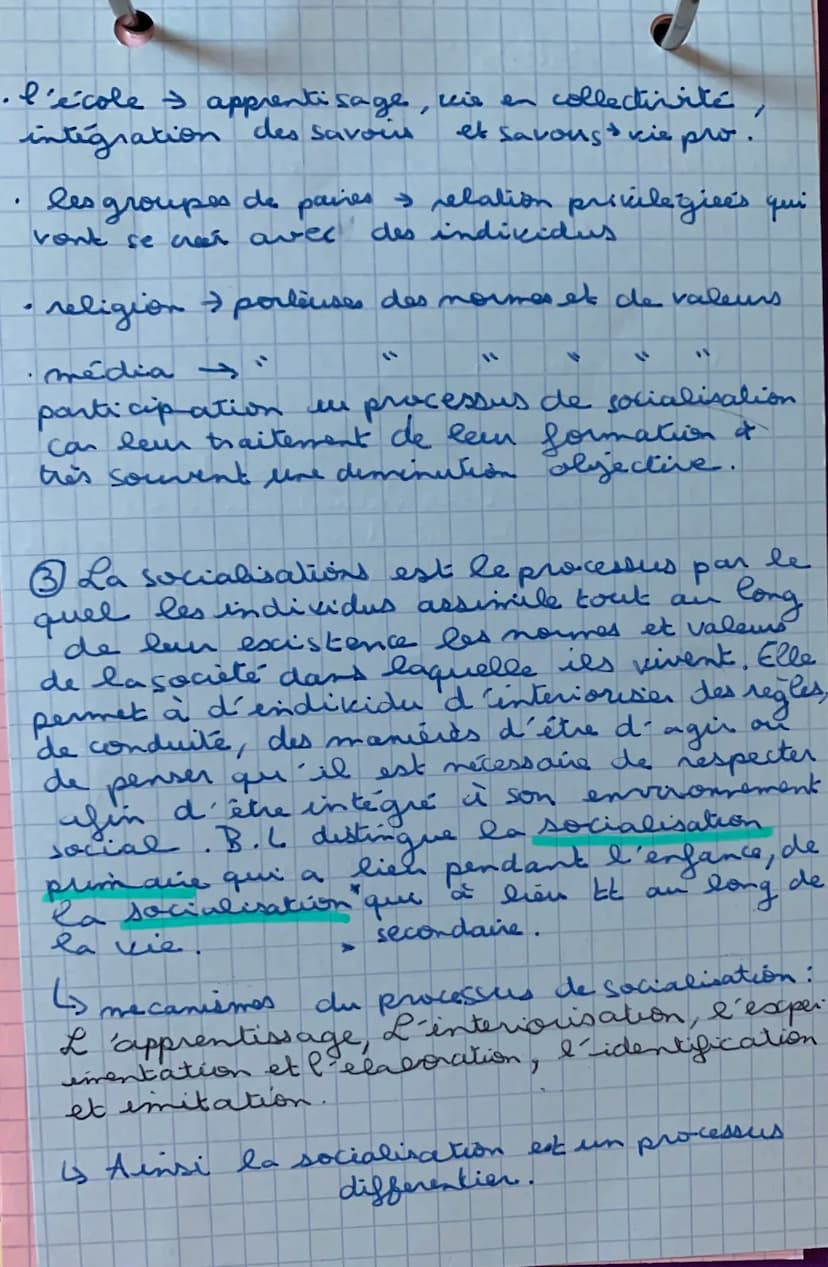 . l'école → apprentisage, vie en collectivité,
intégration des savoirs et savoirs → vie pro.
. les groupes de paires → relation privilégiées qui
vont se créer avec des individus
. religion → porteuses des normes et de valeurs
. média → " " " " " "
participation au processus de socialisation
car leur traitement de leur formation +
très souvent une diminution objective.
③ La socialisations est le processus par le
quel les individus assimile tout au long
de leur escistence les normes et valeurs
de la société dans laquelle ils vivent. Elle
permet à d'individu d'interiorisier des regles,
de conduite, des manières d'être d'agir ou
de penser qu'il est nécessaire de respecter
afin d'être intégré à son environnement
social. B.L distingue la socialisation
primaire qui a lieu pendant l'enfance, de
la socialisation * qui à lieu tt au long de
la vie. > secondaire.
↳ mecanismes du processus de socialisation :
L'apprentissage, L'interiorisation, l'experi-
imentation et l'élaboration, l'identification
et imitation.
↳ Ainsi la socialisation est un processus
differentier.